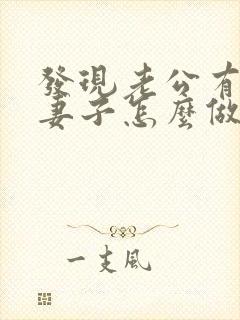 發現老公有
妻子怎麼做
一支風